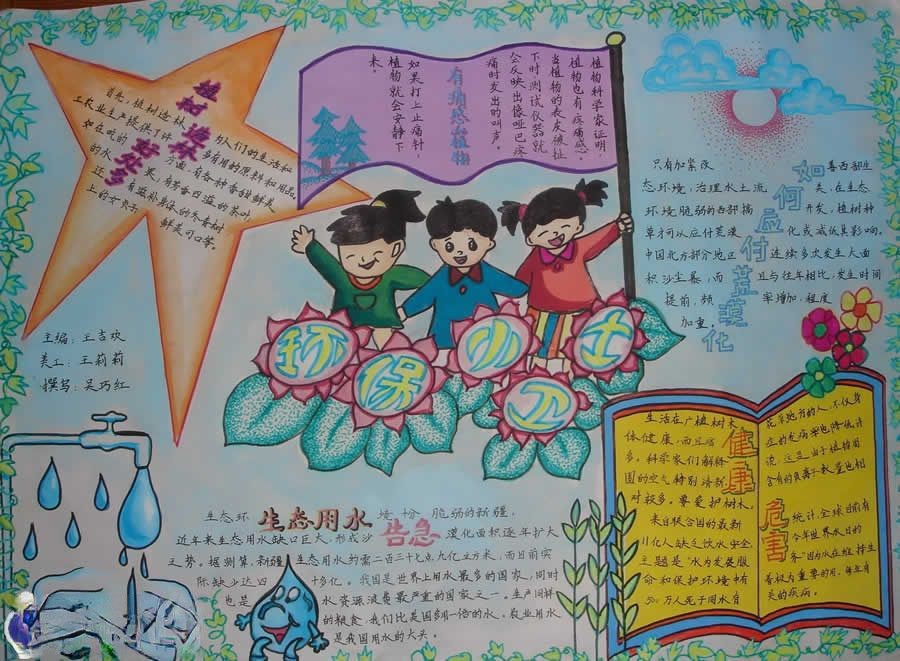 植树造林
好处多
首先，植树造林
与人们的生活和
工农业生产提供了许
多有用的原料和用品
如在吃的
方面，有各种香甜鲜美
的水
果，有芳香四溢的茶叶，
还
有滋补身体的冬青树
上的女贞子
鲜美可口等。
有痛感的植物
植物科学家证明
植物也有疼痛感。
当植物的表皮被扯
下时测试仪器就
会反映出像哑巴疼
痛时发出的叫声。
如果打上止痛针，
植物就会安静下
来。
如何应付荒漠化
只有加紧改
善西部生
态环境，治理水土流
失，在生态
环境脆弱的西部搞
开发，植树种
草才可以应付荒漠
化或减低其影响。
中国北方部分地区
连续多次发生大面
积沙尘暴，而
且与往年相比，发生时间
提前，频
率增加，程度
加重。
主编：王吉欢
美工：王莉莉
撰写：吴巧红
环保小卫士
生态用水
告急
生态环
境十分脆弱的新疆，
近年来生态用水缺口巨大，形成沙
漠化面积逐年扩大
之势。据测算，新疆
生态用水约需二百三十七点九亿立方米，而目前实
际缺少达四
十多亿。我国是世界上用水最多的国家，同时
也是
水资源浪费最严重的国家之一。生产同样
的粮食，我们比美国多用一倍的水。农业用水
是我国用水的大头。
健康
生活在广植树木
体健康，而且活
多，科学家们解释
围的空气特别清新，
对较多，要爱护树木。
危害
来自联合国的最新
统计，全球目前有
亿人缺乏饮水安全，
今年世界水日的
主题是“水为发展服
命和保护环境中有
万人死于用水有
关的疾病。